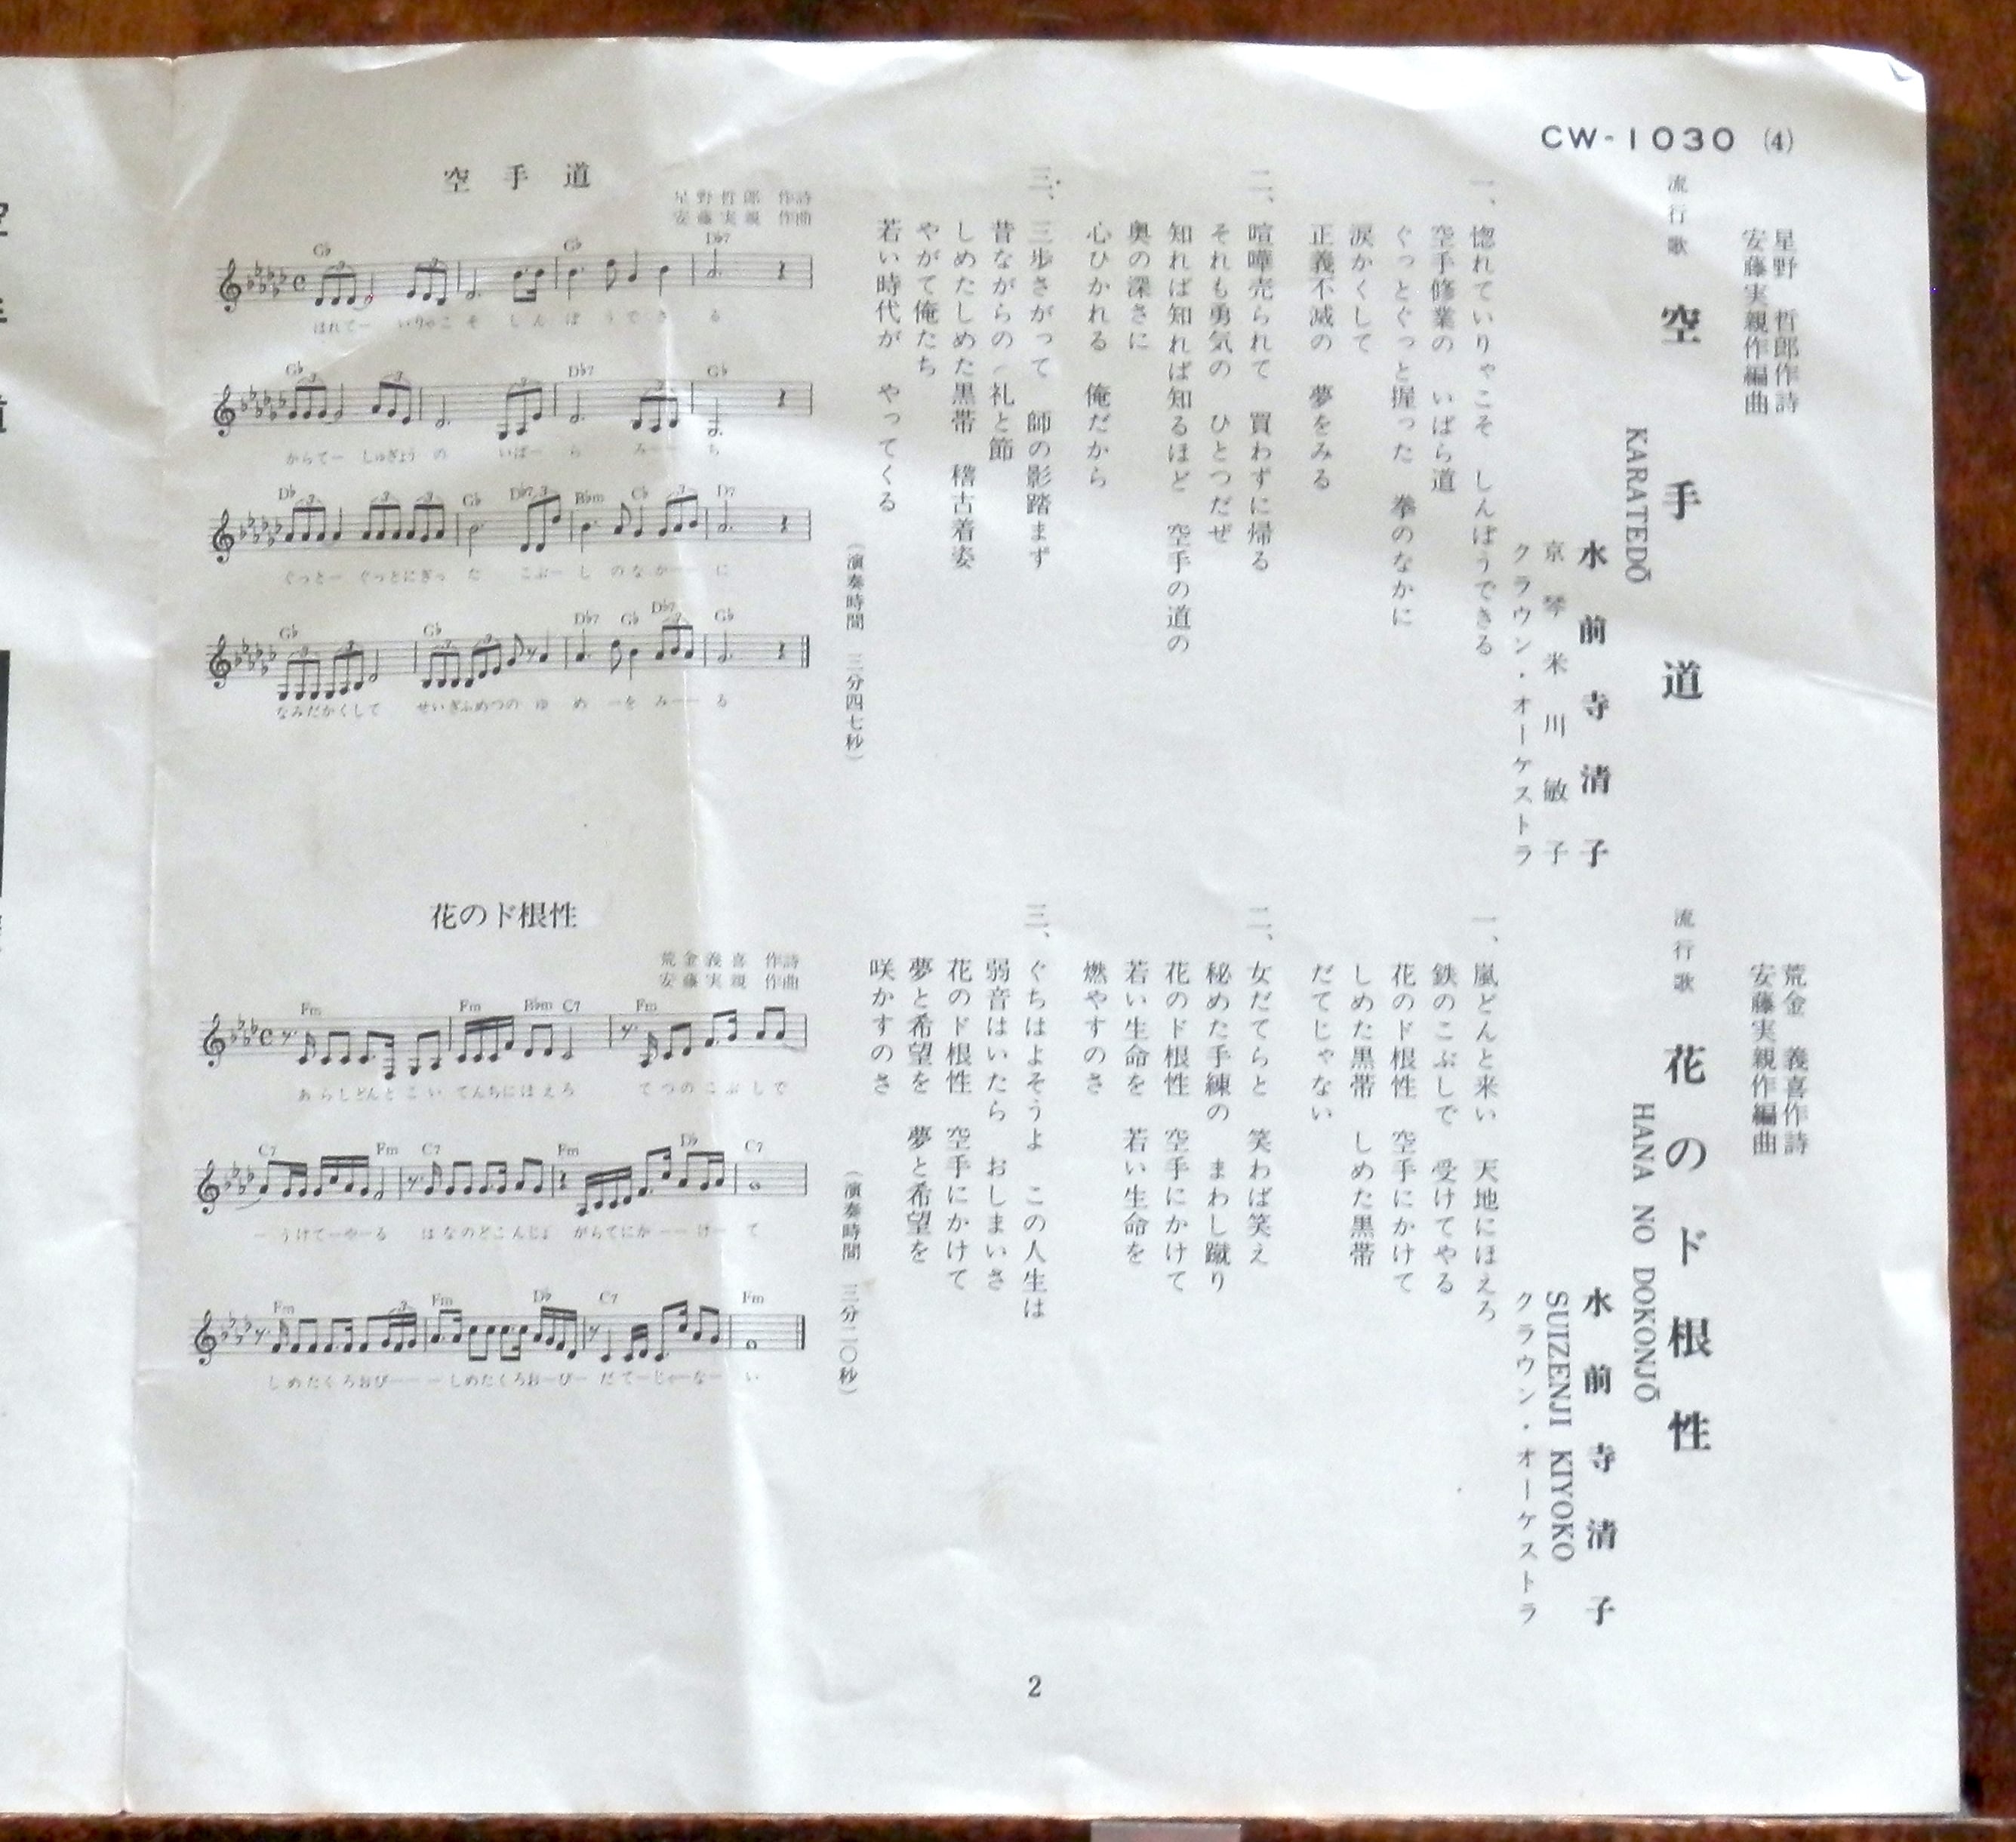 CW-1030 (4)
星野 哲郎作詩
安藤実親作編曲
流行歌 空手道
KARATEDŌ
水前寺清子
京琴 米川敏子
クラウン・オーケストラ
一、惚れていりゃこそ しんぼうできる
空手修業の いばら道
ぐっとぐっと握った 拳のなかに
涙かくして
正義不滅の 夢をみる
二、喧嘩売られて 買わずに帰る
それも勇気の ひとつだぜ
知れば知れば知るほど 空手の道の
奥の深さに
心ひかれる 俺だから
三、三歩さがって 師の影踏まず
昔ながらの 礼と節
しめたしめた黒帯 稽古着姿
やがて俺たち
若い時代が やってくる
(演奏時間 三分四七秒)
空手道
星野哲郎 作詩
安藤実親 作曲
G♭ G♭ D♭7
ほれてー いりゃこ そ しん ぼ うでき る
G♭ D♭7 G♭
からてー しゅぎょう の いばー ら みー ち
D♭ G♭ D♭7 B♭m C♭ D7
ぐっとー ぐっとにぎっ た こぶー し のなかー に
G♭ G♭ D♭7 G♭ D♭7 G♭
なみだかくして せいぎふめつの ゆ め ーを みー る
荒金 義喜作詩
安藤実親作編曲
流行歌 花のド根性
HANA NO DOKONJŌ
水前寺清子
SUIZENJI KIYOKO
クラウン・オーケストラ
一、嵐どんと来い 天地にほえろ
鉄のこぶしで 受けてやる
花のド根性 空手にかけて
しめた黒帯 しめた黒帯
だてじゃない
二、女だてらと 笑わば笑え
秘めた手練の まわし蹴り
花のド根性 空手にかけて
若い生命を 若い生命を
燃やすのさ
三、ぐちはよそうよ この人生は
弱音はいたら おしまいさ
花のド根性 空手にかけて
夢と希望を 夢と希望を
咲かすのさ
(演奏時間 三分二〇秒)
花のド根性
荒金義喜 作詩
安藤実親 作曲
Fm Fm B♭m C7 Fm
あらしどんとこい てんちにほえろ てつのこぶしで
C7 Fm C7 Fm D♭ C7
ーうけてーやーる はなのどこんじょ からてにかーーけー て
Fm Fm D♭ C7 Fm
しめたくろおびーー ーしめたくろおーびー だてーじゃーなー い
2